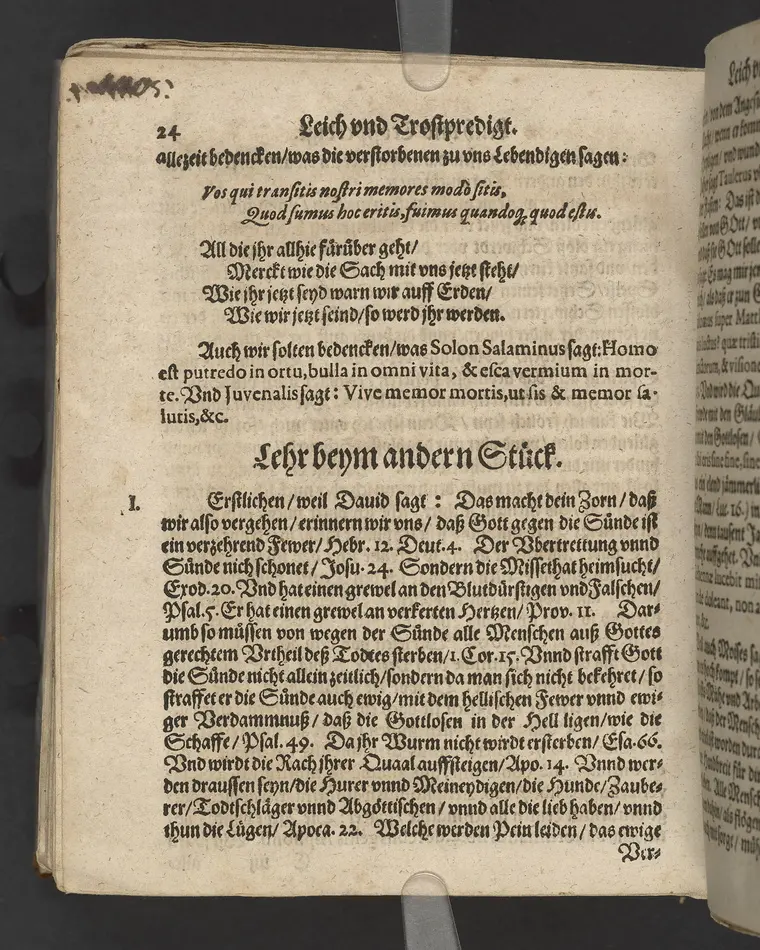 24 Leich vnd Trostpredigt.
allezeit bedencken/was die verstorbenen zu vns Lebendigen sagen:
Vos qui transitis nostri memores modò sitis,
Quod sumus hoc eritis, fuimus quandoq; quod estis.
All die jhr allhie fürüber geht/
Merckt wie die Sach mit vns jetzt steht/
Wie ihr jetzt seyd warn wir auff Erden/
Wie wir jetzt seind/so werd jhr werden.
Auch wir solten bedencken/was Solon Salaminus sagt: Homo
est putredo in ortu, bulla in omni vita, & esca vermium in mor-
te. Vnd Juvenalis sagt: Vive memor mortis, ut sis & memor sa-
lutis, &c.
Lehr beym andern Stück.
I. Erstlichen/weil Dauid sagt: Das macht dein Zorn/daß
wir also vergehen/erinnern wir vns/daß Gott gegen die Sünde ist
ein verzehrend Fewer/Hebr. 12. Deut. 4. Der Vbertrettung vnnd
Sünde nich schonet/Josu. 24. Sondern die Missethat heimsucht/
Exod. 20. Vnd hat einen grewel an den Blutdürstigen vnd Falschen/
Psal. 5. Er hat einen grewel an verkerten Hertzen/Prov. 11. Dar-
umb so müssen von wegen der Sünde alle Menschen auß Gottes
gerechtem Vrtheil deß Todtes sterben/1. Cor. 15. Vnnd strafft Gott
die Sünde nicht allein zeitlich/sondern da man sich nicht bekehret/so
straffet er die Sünde auch ewig/mit dem hellischen Fewer vnnd ewi-
ger Verdammnuß/daß die Gottlosen in der Hell ligen/wie die
Schaffe/Psal. 49. Da jhr Wurm nicht wirdt ersterben/Esa. 66.
Vnd wirdt die Rach jhrer Quaal auffsteigen/Apo. 14. Vnnd wer-
den draussen seyn/die Hurer vnnd Meineydigen/die Hunde/Zaube-
rer/Todtschläger vnnd Abgöttischen/vnnd alle die lieb haben/vnnd
thun die Lügen/Apoca. 22. Welche werden Pein leiden/das ewige
Ver-